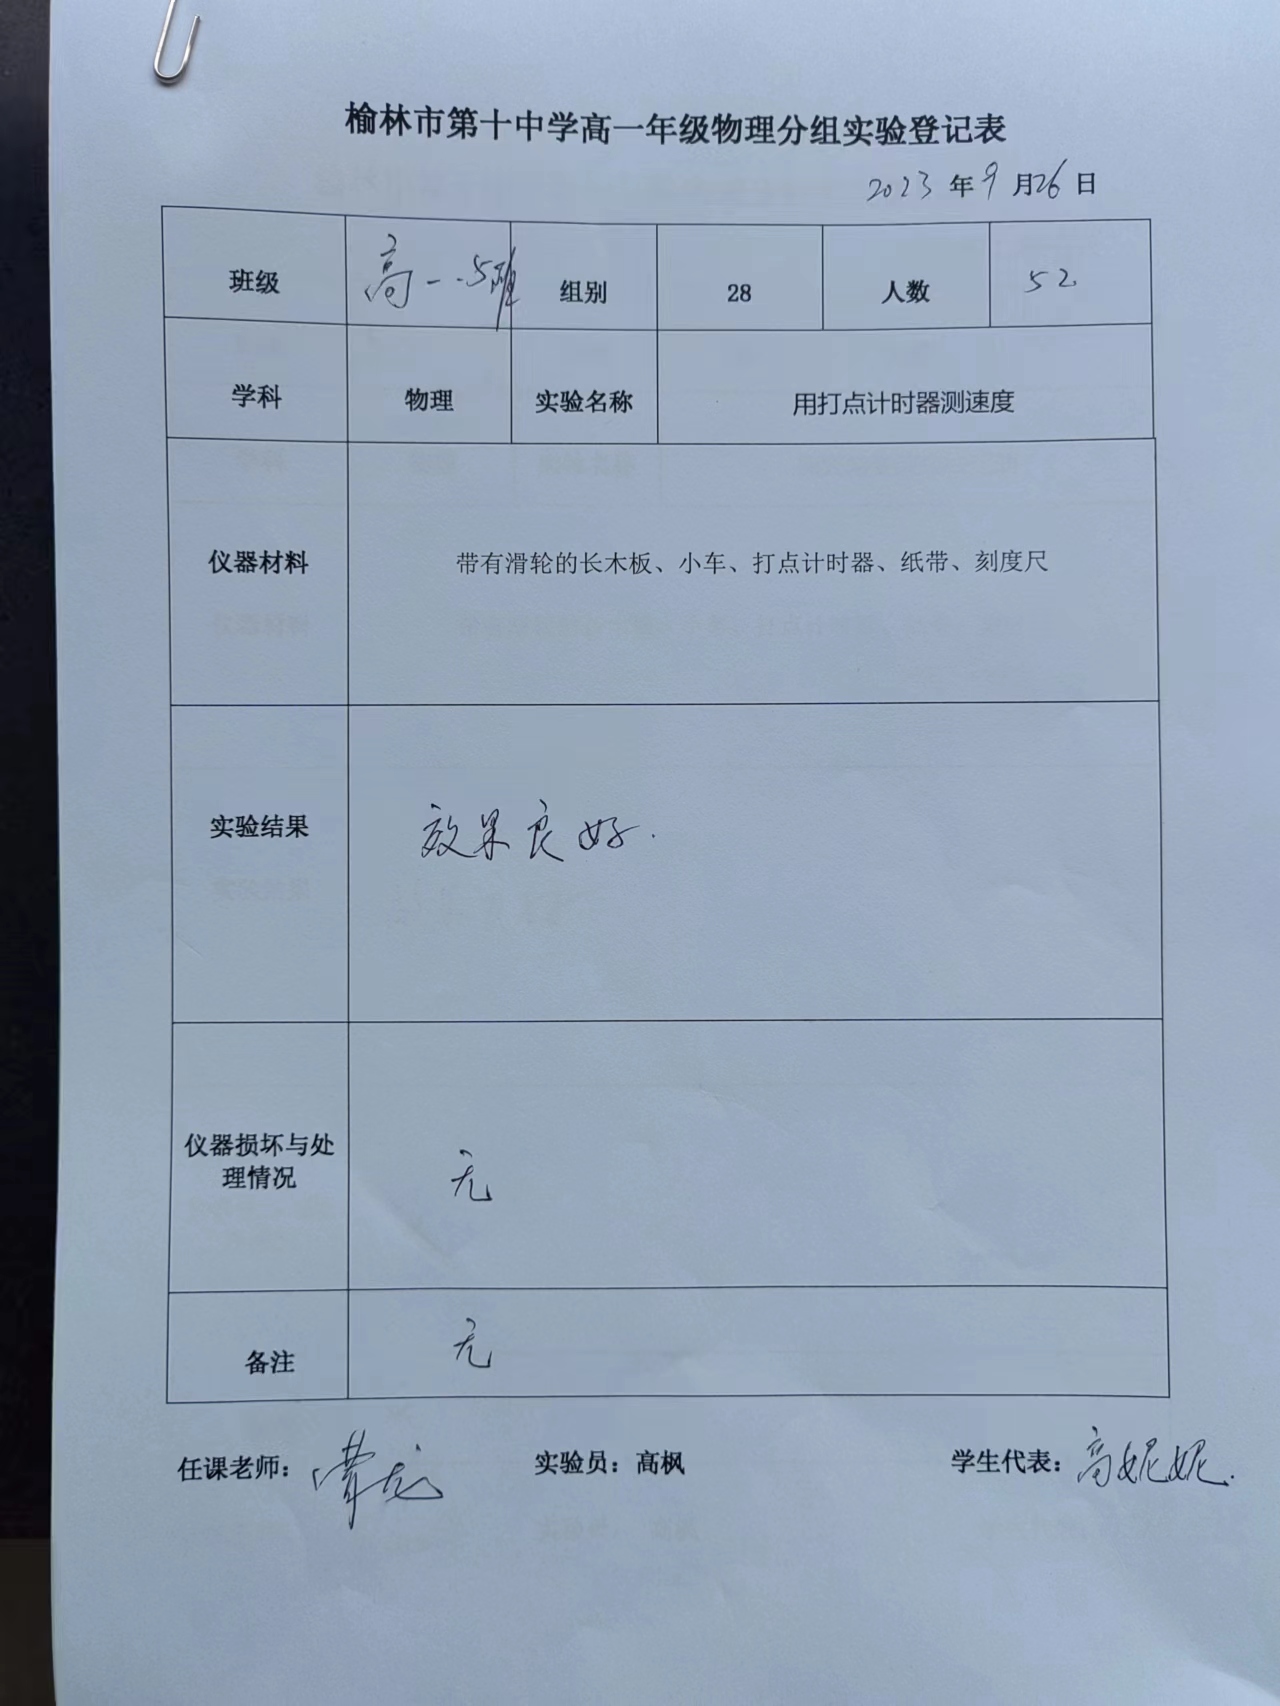 榆林市第十中学高一年级物理分组实验登记表
2023 年 9 月 26 日
班级 高一.5班 组别 28 人数 52.
学科 物理 实验名称 用打点计时器测速度
仪器材料 带有滑轮的长木板、小车、打点计时器、纸带、刻度尺
实验结果 效果良好.
仪器损坏与处
理情况 无
备注 无
任课老师： 实验员：高枫 学生代表：高妮妮.